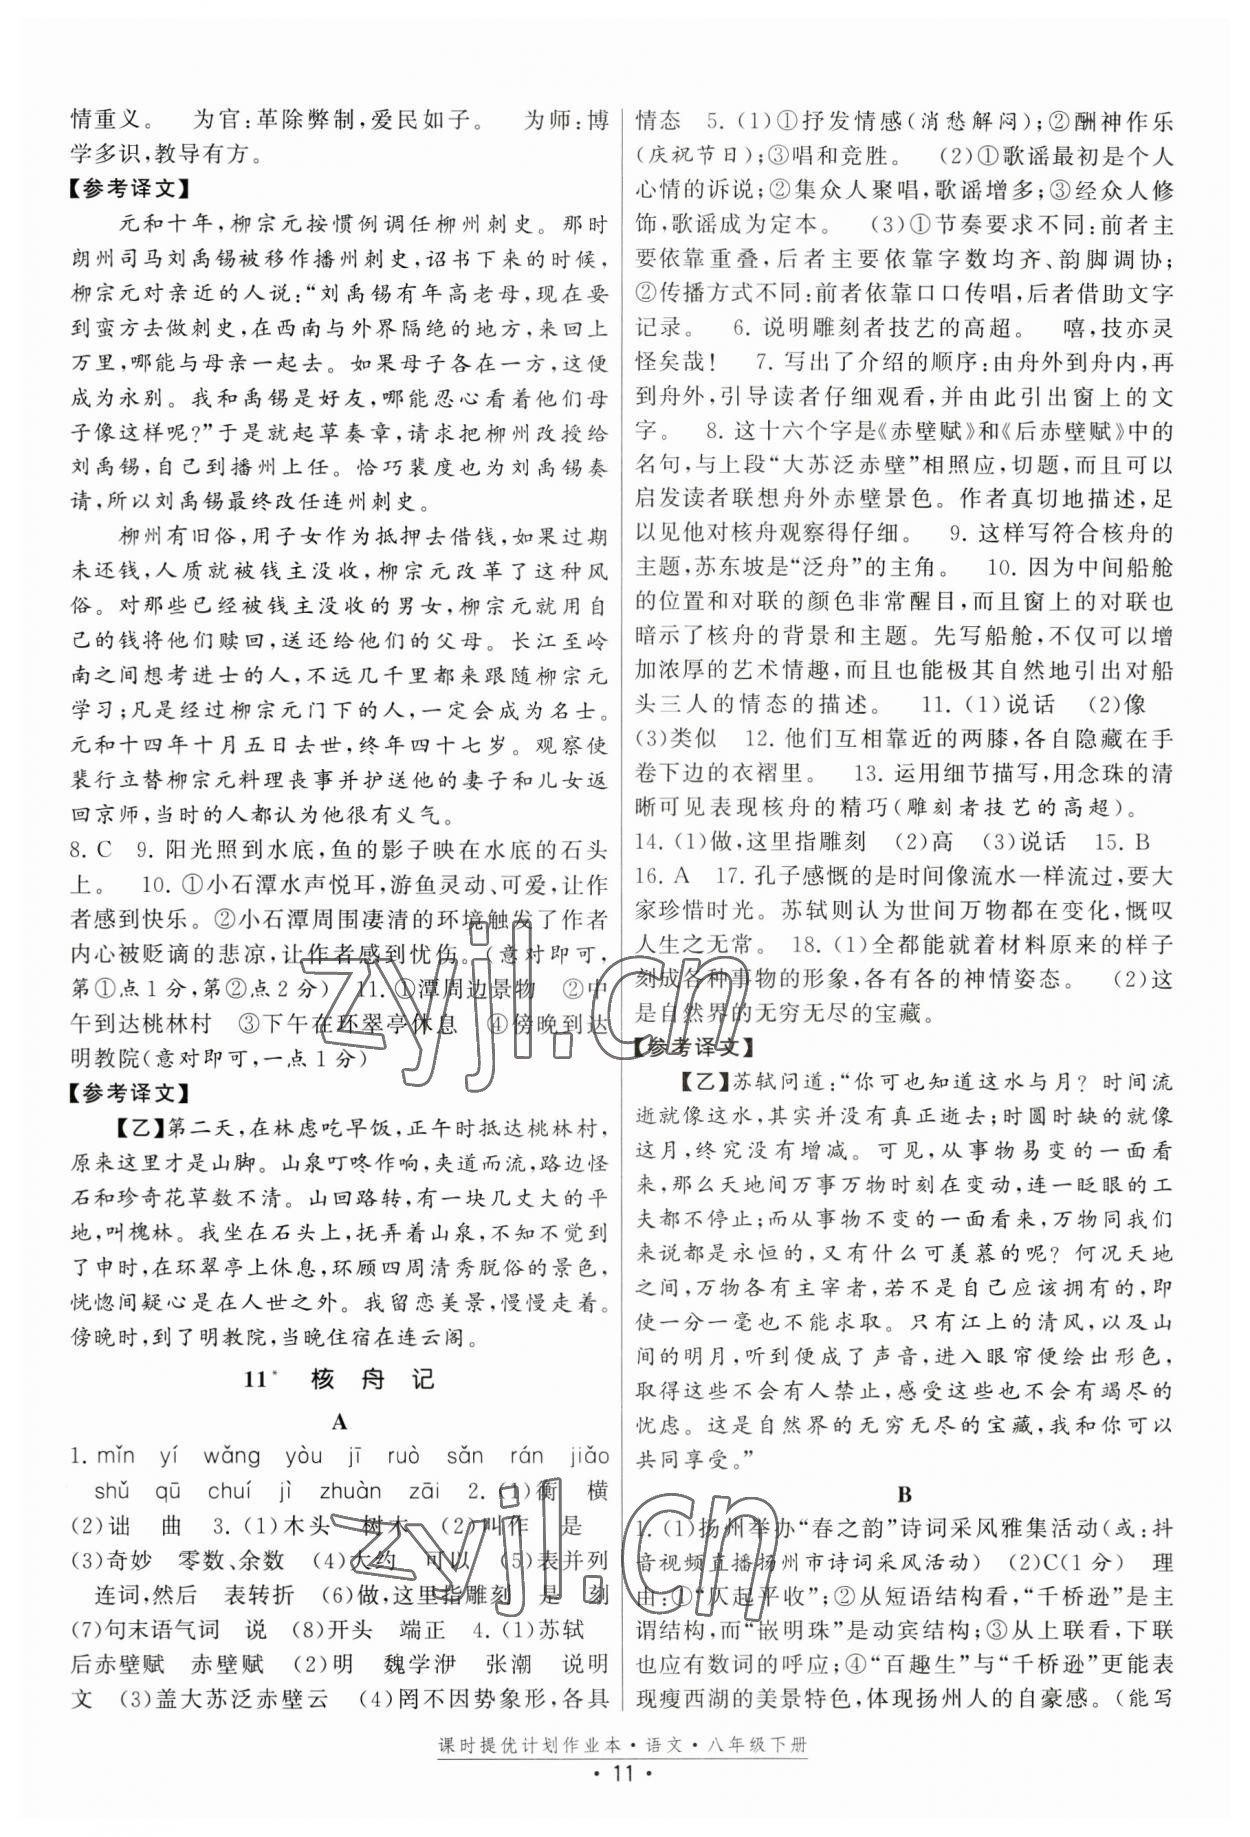 情重义。 为官:革除弊制,爱民如子。 为师:博
学多识,教导有方。
【参考译文】
元和十年,柳宗元按惯例调任柳州刺史。那时
朗州司马刘禹锡被移作播州刺史,诏书下来的时候,
柳宗元对亲近的人说:“刘禹锡有年高老母,现在要
到蛮方去做刺史,在西南与外界隔绝的地方,来回上
万里,哪能与母亲一起去。如果母子各在一方,这便
成为永别。我和禹锡是好友,哪能忍心看着他们母
子像这样呢?”于是就起草奏章,请求把柳州改授给
刘禹锡,自己到播州上任。恰巧裴度也为刘禹锡奏
请,所以刘禹锡最终改任连州刺史。
柳州有旧俗,用子女作为抵押去借钱,如果过期
未还钱,人质就被钱主没收,柳宗元改革了这种风
俗。对那些已经被钱主没收的男女,柳宗元就用自
己的钱将他们赎回,送还给他们的父母。长江至岭
南之间想考进士的人,不远几千里都来跟随柳宗元
学习;凡是经过柳宗元门下的人,一定会成为名士。
元和十四年十月五日去世,终年四十七岁。观察使
裴行立替柳宗元料理丧事并护送他的妻子和儿女返
回京师,当时的人都认为他很有义气。
8. C 9. 阳光照到水底,鱼的影子映在水底的石头
上。 10. ①小石潭水声悦耳,游鱼灵动、可爱,让作
者感到快乐。②小石潭周围凄清的环境触发了作者
内心被贬谪的悲凉,让作者感到忧伤。(意对即可,
第①点1分,第②点2分) 11. ①潭周边景物 ②中
午到达桃林村 ③下午在环翠亭休息 ④傍晚到达
明教院(意对即可,一点1分)
【参考译文】
【乙】第二天,在林虑吃早饭,正午时抵达桃林村,
原来这里才是山脚。山泉叮咚作响,夹道而流,路边怪
石和珍奇花草数不清。山回路转,有一块几丈大的平
地,叫槐林。我坐在石头上,抚弄着山泉,不知不觉到
了申时,在环翠亭上休息,环顾四周清秀脱俗的景色,
恍惚间疑心是在人世之外。我留恋美景,慢慢走着。
傍晚时,到了明教院,当晚住宿在连云阁。
11* 核舟记
A
1. mǐn yí wǎng yòu jī ruò sǎn rán jiǎo
shǔ qū chuí jì zhuàn zāi 2. (1)衡 横
(2)诎 曲 3. (1)木头 树木 (2)叫作 是
(3)奇妙 零数、余数 (4)大约 可以 (5)表并列
连词,然后 表转折 (6)做,这里指雕刻 是 刻
(7)句末语气词 说 (8)开头 端正 4. (1)苏轼
后赤壁赋 赤壁赋 (2)明 魏学洢 张潮 说明
文 (3)盖大苏泛赤壁云 (4)罔不因势象形,各具
情态 5. (1)①抒发情感(消愁解闷);②酬神作乐
(庆祝节日);③唱和竞胜。 (2)①歌谣最初是个人
心情的诉说;②集众人聚唱,歌谣增多;③经众人修
饰,歌谣成为定本。 (3)①节奏要求不同:前者主
要依靠重叠,后者主要依靠字数均齐、韵脚调协;
②传播方式不同:前者依靠口口传唱,后者借助文字
记录。 6. 说明雕刻者技艺的高超。 嘻,技亦灵
怪矣哉! 7. 写出了介绍的顺序:由舟外到舟内,再
到舟外,引导读者仔细观看,并由此引出窗上的文
字。 8. 这十六个字是《赤壁赋》和《后赤壁赋》中的
名句,与上段“大苏泛赤壁”相照应,切题,而且可以
启发读者联想舟外赤壁景色。作者真切地描述,足
以见他对核舟观察得仔细。 9. 这样写符合核舟的
主题,苏东坡是“泛舟”的主角。 10. 因为中间船舱
的位置和对联的颜色非常醒目,而且窗上的对联也
暗示了核舟的背景和主题。先写船舱,不仅可以增
加浓厚的艺术情趣,而且也能极其自然地引出对船
头三人的情态的描述。 11. (1)说话 (2)像
(3)类似 12. 他们互相靠近的两膝,各自隐藏在手
卷下边的衣褶里。 13. 运用细节描写,用念珠的清
晰可见表现核舟的精巧(雕刻者技艺的高超)。
14. (1)做,这里指雕刻 (2)高 (3)说话 15. B
16. A 17. 孔子感慨的是时间像流水一样流过,要大
家珍惜时光。苏轼则认为世间万物都在变化,慨叹
人生之无常。 18. (1)全都能就着材料原来的样子
刻成各种事物的形象,各有各的神情姿态。 (2)这
是自然界的无穷无尽的宝藏。
【参考译文】
【乙】苏轼问道:“你可也知道这水与月?时间流
逝就像这水,其实并没有真正逝去;时圆时缺的就像
这月,终究没有增减。可见,从事物易变的一面看
来,那么天地间万事万物时刻在变动,连一眨眼的工
夫都不停止;而从事物不变的一面看来,万物同我们
来说都是永恒的,又有什么可羡慕的呢?何况天地
之间,万物各有主宰者,若不是自己应该拥有的,即
使一分一毫也不能求取。只有江上的清风,以及山
间的明月,听到便成了声音,进入眼帘便绘出形色,
取得这些不会有人禁止,感受这些也不会有竭尽的
忧虑。这是自然界的无穷无尽的宝藏,我和你可以
共同享受。”
B
1. (1)扬州举办“春之韵”诗词采风雅集活动(或:抖
音视频直播扬州市诗词采风活动) (2)C(1分) 理
由:①“仄起平收”;②从短语结构看,“千桥逊”是主
谓结构,而“嵌明珠”是动宾结构;③从上联看,下联
也应有数词的呼应;④“百趣生”与“千桥逊”更能表
现瘦西湖的美景特色,体现扬州人的自豪感。(能写
课时提优计划作业本·语文·八年级下册
·11·
zyjl.cn
zyjl.cn